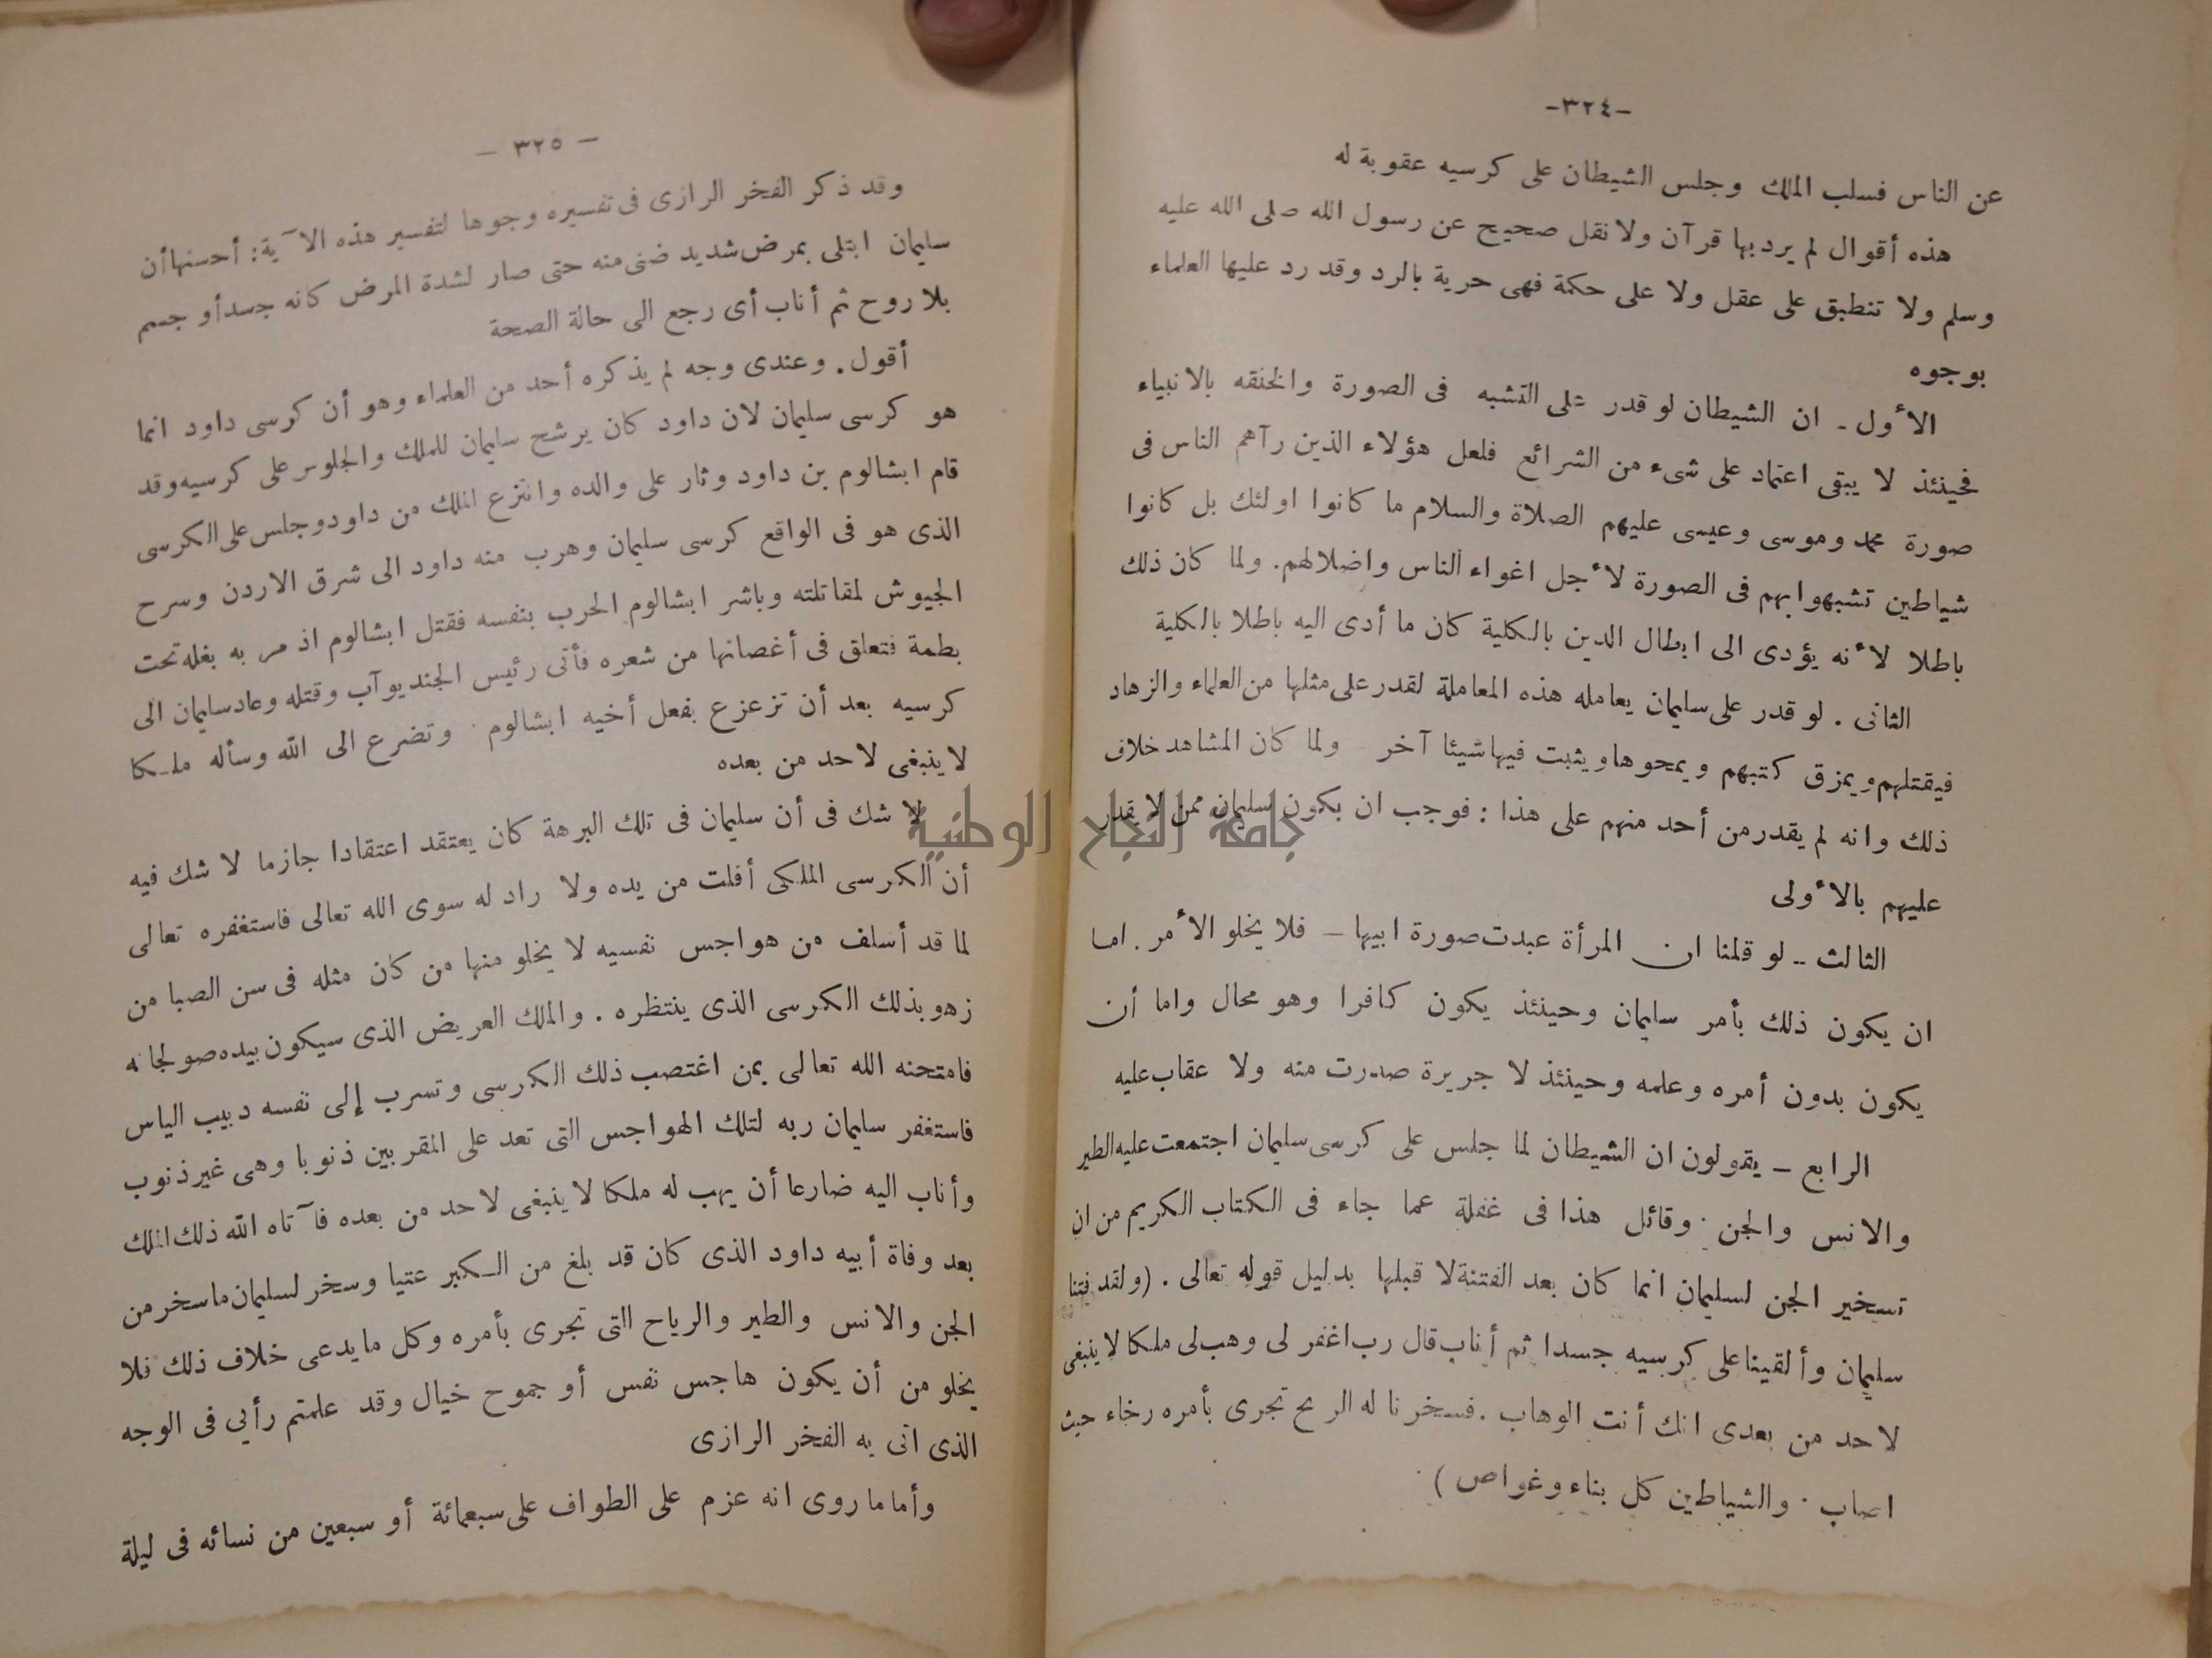 -٣٢٤-
عن الناس فسلب الملك وجلس الشيطان على كرسيه عقوبة له
هذه أقوال لم يرد بها قرآن ولا نقل صحيح عن رسول الله صلى الله عليه
وسلم ولا تنطبق على عقل ولا على حكمة فهى حرية بالرد وقد رد عليها العلماء
بوجوه
الأول - ان الشيطان لو قدر على التشبه فى الصورة والخلقه بالانبياء
فحينئذ لا يبقى اعتماد على شىء من الشرائع فلعل هؤلاء الذين رآهم الناس فى
صورة محمد وموسى وعيسى عليهم الصلاة والسلام ما كانوا اولئك بل كانوا
شياطين تشبهوا بهم فى الصورة لأجل اغواء الناس واضلالهم. ولما كان ذلك
باطلا لأنه يؤدى الى ابطال الدين بالكلية كان ما أدى اليه باطلا بالكلية
الثانى . لو قدر على سليمان يعامله هذه المعاملة لقدر على مثلها من العلماء والزهاد
فيقتلهم ويمزق كتبهم ويمحوها ويثبت فيها شيئا آخر - ولما كان المشاهد خلاف
ذلك وانه لم يقدر من أحد منهم على هذا : فوجب ان يكون سليمان ممن لا يقدر
جامعة النجاح الوطنية
عليهم بالأولى
الثالث - لو قلنا ان المرأة عبدت صورة ابيها - فلا يخلو الأمر . اما
ان يكون ذلك بأمر سليمان وحينئذ يكون كافرا وهو محال واما أن
يكون بدون أمره وعلمه وحينئذ لا جريرة صدرت منه ولا عقاب عليه
الرابع - يقولون ان الشيطان لما جلس على كرسى سليمان اجتمعت عليه الطير
والانس والجن . وقائل هذا فى غفلة عما جاء فى الكتاب الكريم من ان
تسخير الجن لسليمان انما كان بعد الفتنة لا قبلها بدليل قوله تعالى . (ولقد فتنا
سليمان وألقينا على كرسيه جسدا ثم أناب قال رب اغفر لى وهب لى ملكا لا ينبغى
لاحد من بعدى انك أنت الوهاب . فسخرنا له الريح تجرى بأمره رخاء حيث
اصاب . والشياطين كل بناء وغواص )
- ٣٢٥ -
وقد ذكر الفخر الرازى فى تفسيره وجوها لتفسير هذه الآية: أحسنها أن
سليمان ابتلى بمرض شديد ضنى منه حتى صار لشدة المرض كانه جسد أو جسم
بلا روح ثم أناب أى رجع الى حالة الصحة
أقول . وعندى وجه لم يذكره أحد من العلماء وهو أن كرسى داود انما
هو كرسى سليمان لان داود كان يرشح سليمان للملك والجلوس على كرسيه وقد
قام ابشالوم بن داود وثار على والده وانتزع الملك من داود وجلس على الكرسى
الذى هو فى الواقع كرسى سليمان وهرب منه داود الى شرق الاردن وسرح
الجيوش لمقاتلته وباشر ابشالوم الحرب بنفسه فقتل ابشالوم اذ مر به بغله تحت
بطمة فتعلق فى أغصانها من شعره فأتى رئيس الجند يوآب وقتله وعاد سليمان الى
كرسيه بعد أن تزعزع بفعل أخيه ابشالوم . وتضرع الى الله وسأله ملكا
لا ينبغى لاحد من بعده
لا شك فى أن سليمان فى تلك البرهة كان يعتقد اعتقادا جازما لا شك فيه
أن الكرسى الملكى أفلت من يده ولا راد له سوى الله تعالى فاستغفره تعالى
لما قد أسلف من هواجس نفسيه لا يخلو منها من كان مثله فى سن الصبا من
زهو بذلك الكرسى الذى ينتظره . والملك العريض الذى سيكون بيده صولجانه
فامتحنه الله تعالى بمن اغتصب ذلك الكرسى وتسرب إلى نفسه دبيب الياس
فاستغفر سليمان ربه لتلك الهواجس التى تعد على المقربين ذنوبا وهى غير ذنوب
وأناب اليه ضارعا أن يهب له ملكا لا ينبغى لاحد من بعده فآتاه الله ذلك الملك
بعد وفاة أبيه داود الذى كان قد بلغ من الكبر عتيا وسخر لسليمان ما سخر من
الجن والانس والطير والرياح التى تجرى بأمره وكل ما يدعى خلاف ذلك فلا
يخلو من أن يكون هاجس نفس أو جموح خيال وقد علمتم رأيى فى الوجه
الذى اتى به الفخر الرازى
وأما ما روى انه عزم على الطواف على سبعمائة أو سبعين من نسائه فى ليلة